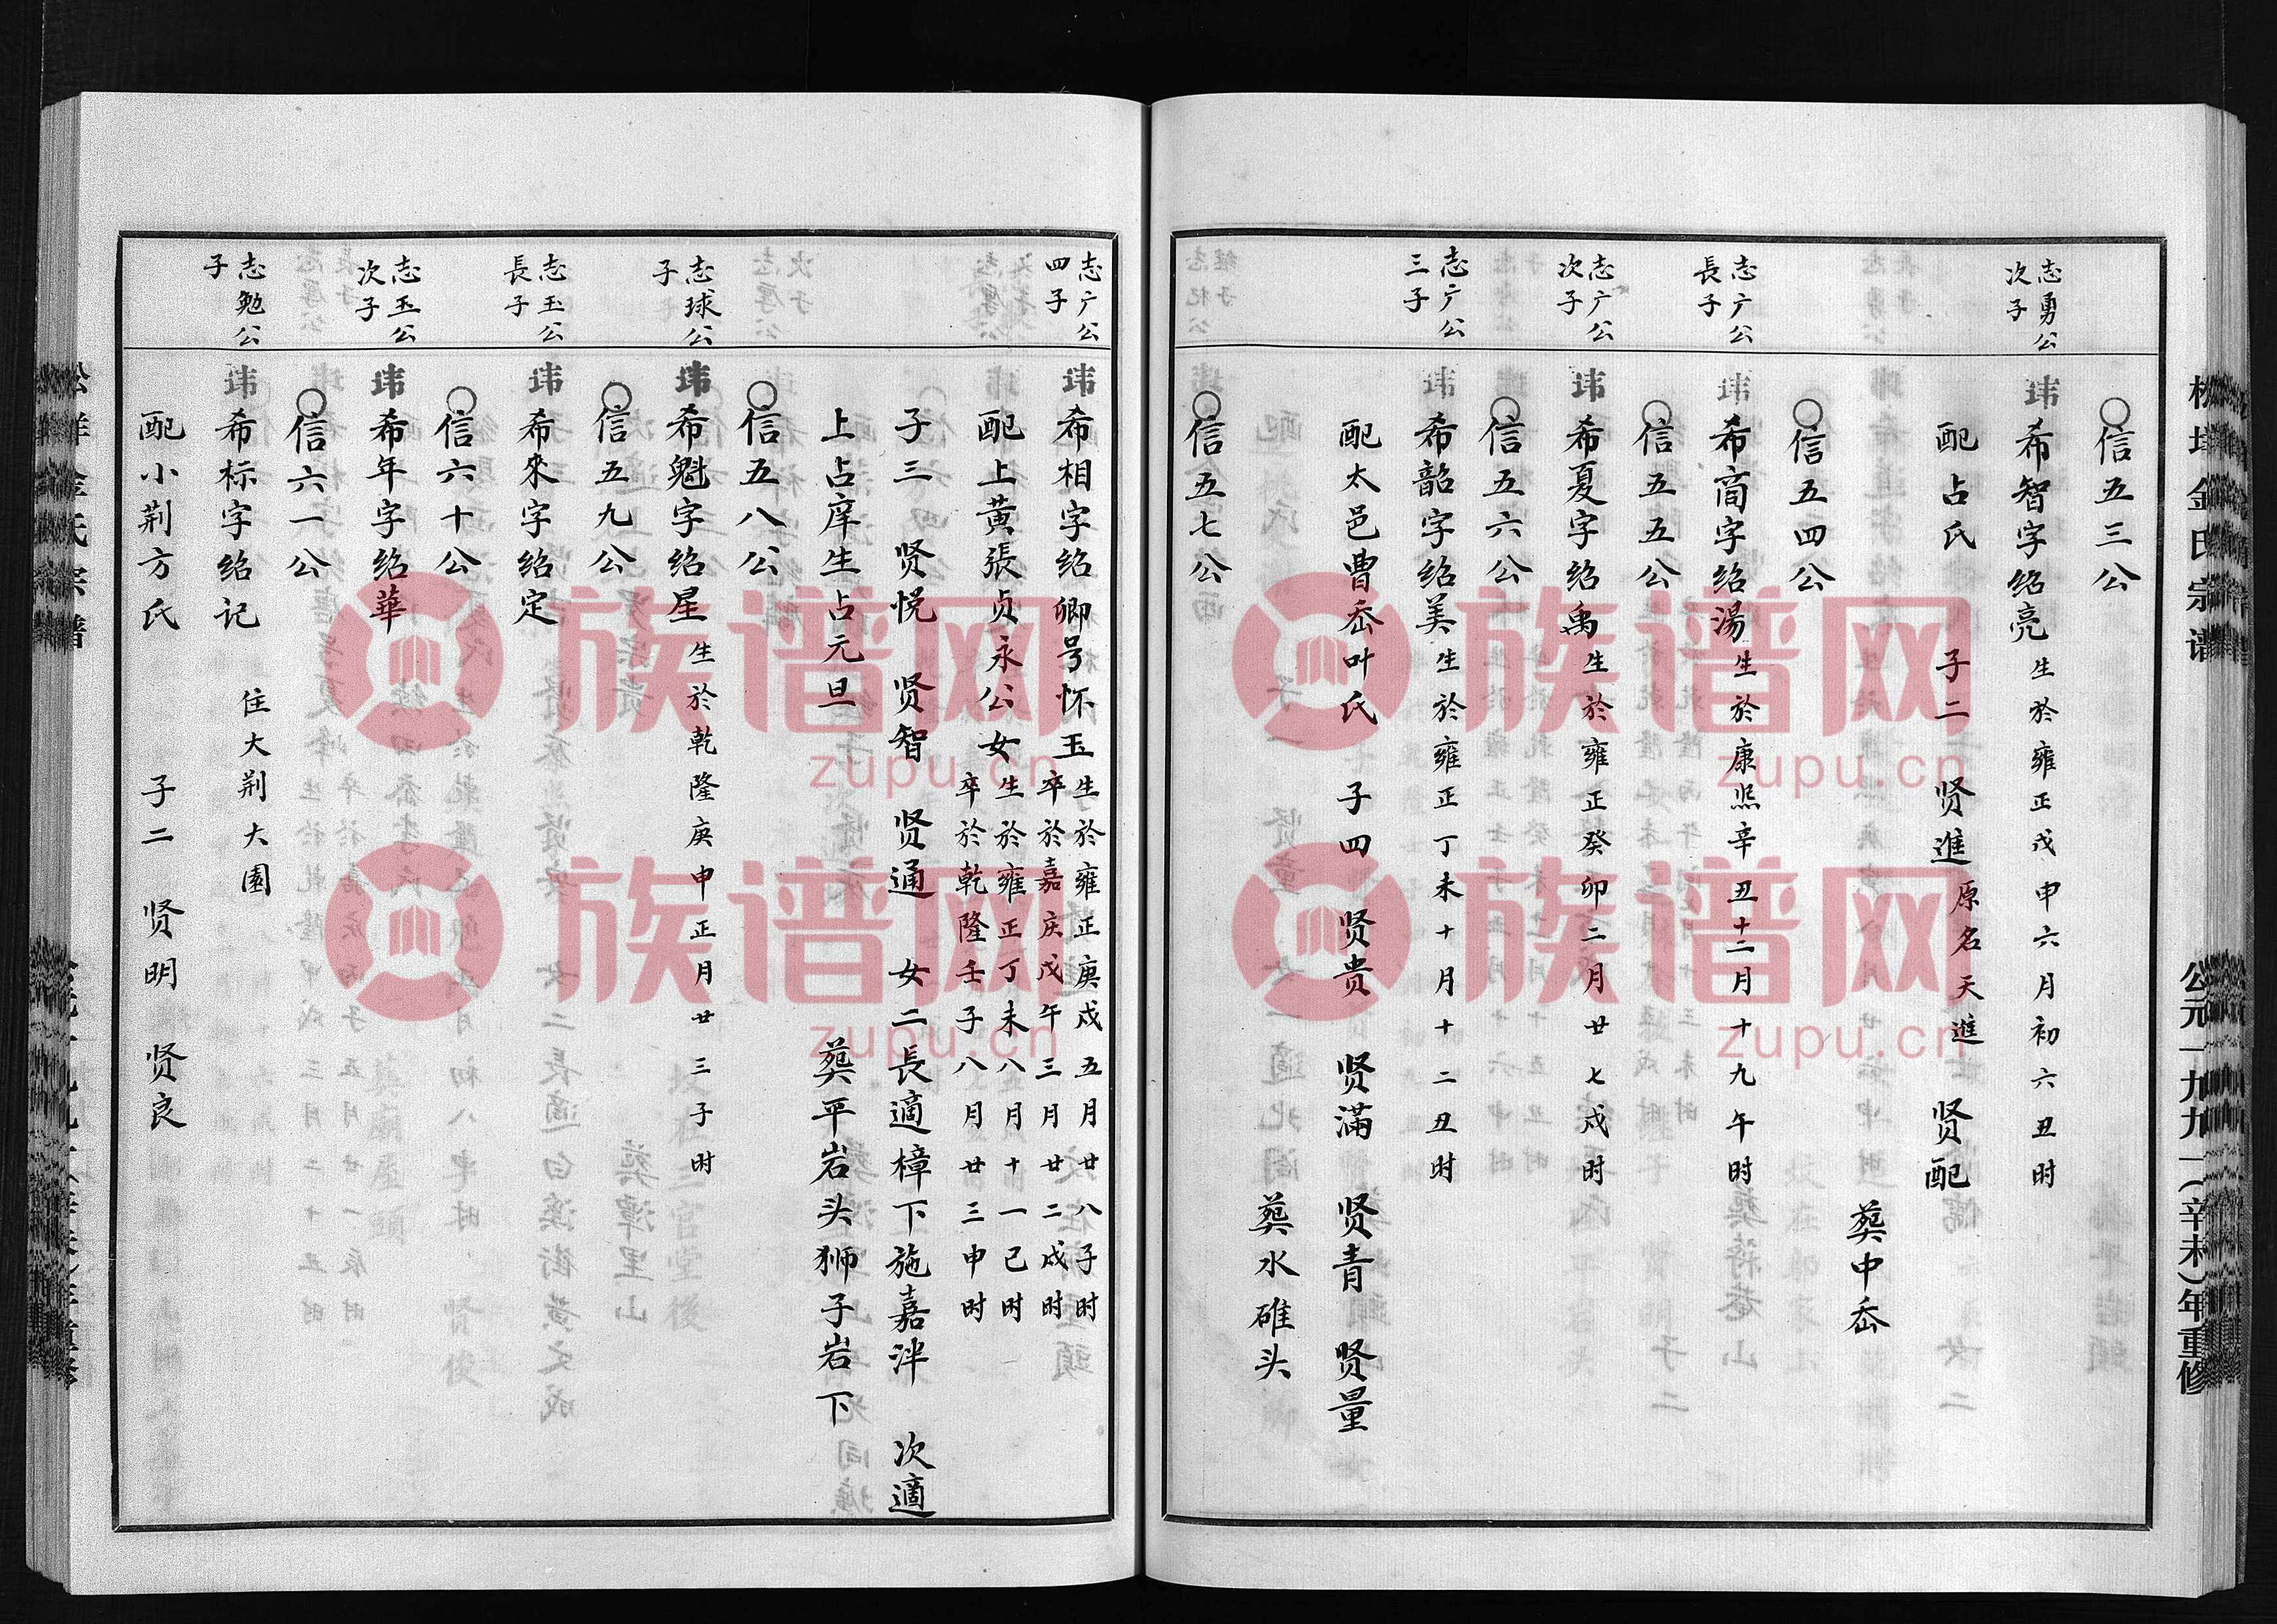 信五三公
志勇公
次子
讳希智字绍亮
生於雍正戊申六月初六丑时
配占氏 子二 贤進 原名天進 贤配
葬中岙
信五四公
志广公
長子
讳希商字绍湯
生於康熙辛丑十二月十九午时
信五五公
志广公
次子
讳希夏字绍禹
生於雍正癸卯二月廿七戌时
信五六公
志广公
三子
讳希韶字绍美
生於雍正丁未十月十二丑时
配太邑曹岙叶氏 子四 贤贵 贤滿 贤青 贤量
葬水碓头
信五七公
志广公
四子
讳希相字绍卿号怀玉
生於雍正庚戌五月廿八子时
卒於嘉庆戊午三月廿二戌时
配上黄張贞永公女
生於雍正丁未八月十一巳时
卒於乾隆壬子八月廿三申时
子三 贤悦 贤智 贤通 女二長適樟下施嘉泮 次適
上占庠生占元旦 葬平岩头狮子岩下
信五八公
志球公
子
讳希魁字绍星
生於乾隆庚申正月廿三子时
信五九公
志玉公
長子
讳希來字绍定
信六十公
志玉公
次子
讳希年字绍華
信六一公
志勉公
子
讳希标字绍记
住大荆大園
配小荆方氏 子二 贤明 贤良
金氏宗谱
公元一九九一(辛未)年重修
族谱网
zupu.cn
族谱网
zupu.cn
族谱网
zupu.cn
族谱网
zupu.cn